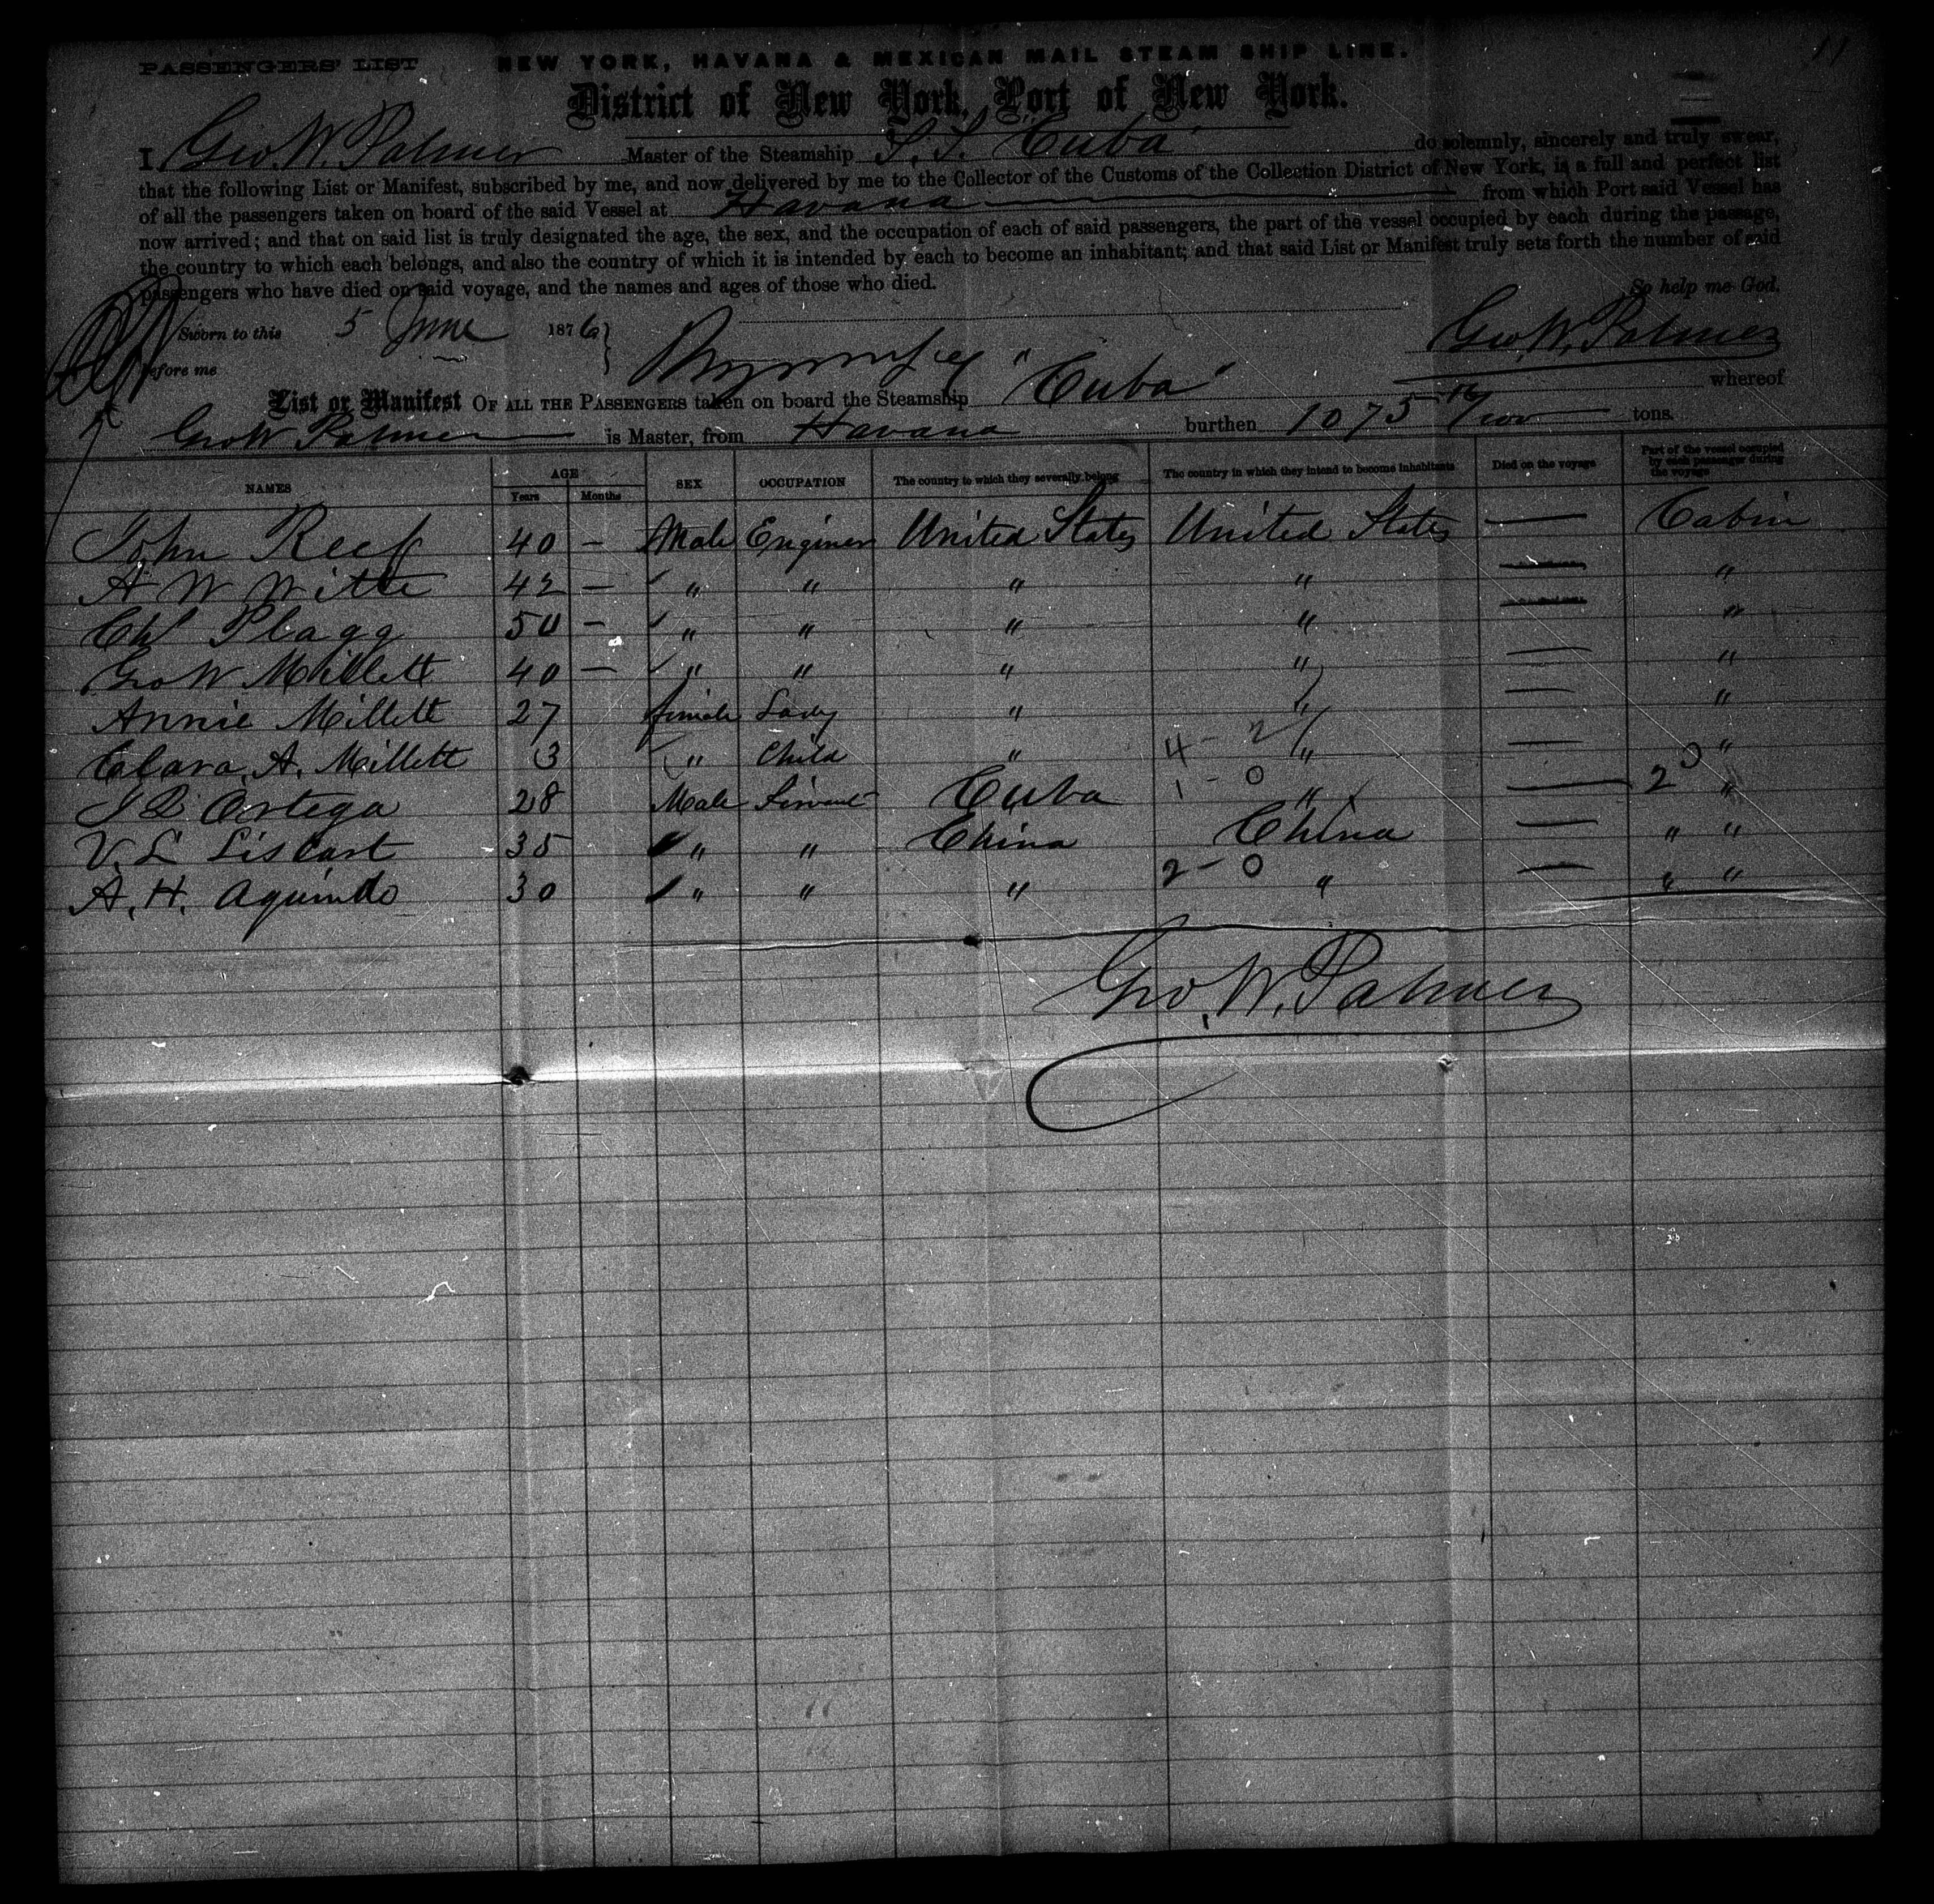 11
PASSENGERS' LIST NEW YORK, HAVANA & MEXICAN MAIL STEAM SHIP LINE.
District of New York, Port of New York.
I, Geo. W. Palmer Master of the Steamship S. S. "Cuba" do solemnly, sincerely and truly swear,
that the following List or Manifest, subscribed by me, and now delivered by me to the Collector of the Customs of the Collection District of New York, is a full and perfect list
of all the passengers taken on board of the said Vessel at Havana from which Port said Vessel has
now arrived; and that on said list is truly designated the age, the sex, and the occupation of each of said passengers, the part of the vessel occupied by each during the passage,
the country to which each belongs, and also the country of which it is intended by each to become an inhabitant; and that said List or Manifest truly sets forth the number of said
passengers who have died on said voyage, and the names and ages of those who died. So help me God.
Sworn to this 5 June 1876 Geo. W. Palmer
before me
List or Manifest OF ALL THE PASSENGERS taken on board the Steamship "Cuba" whereof
Geo W Palmer is Master, from Havana burthen 1075 16/100 tons.
NAMES AGE Years Months SEX OCCUPATION The country to which they severally belong The country in which they intend to become inhabitants Died on the voyage Part of the vessel occupied by each passenger during the voyage
John Reef 40 — Male Enginer United States United States — Cabin
A W Witte 42 — " " " " — "
CW Plagg 50 — " " " " — "
Geo W Millett 40 — " " " " — "
Annie Millett 27 female Lady " " — "
Clara. A. Millett 3 " Child " 4 - 2 " — "
Ortega 28 Male Servant Cuba 1 - 0 " — 2 "
V. L 35 " " China China — " "
A. H. 30 " " " 2 - 0 " — " "
Geo. W. Palmer